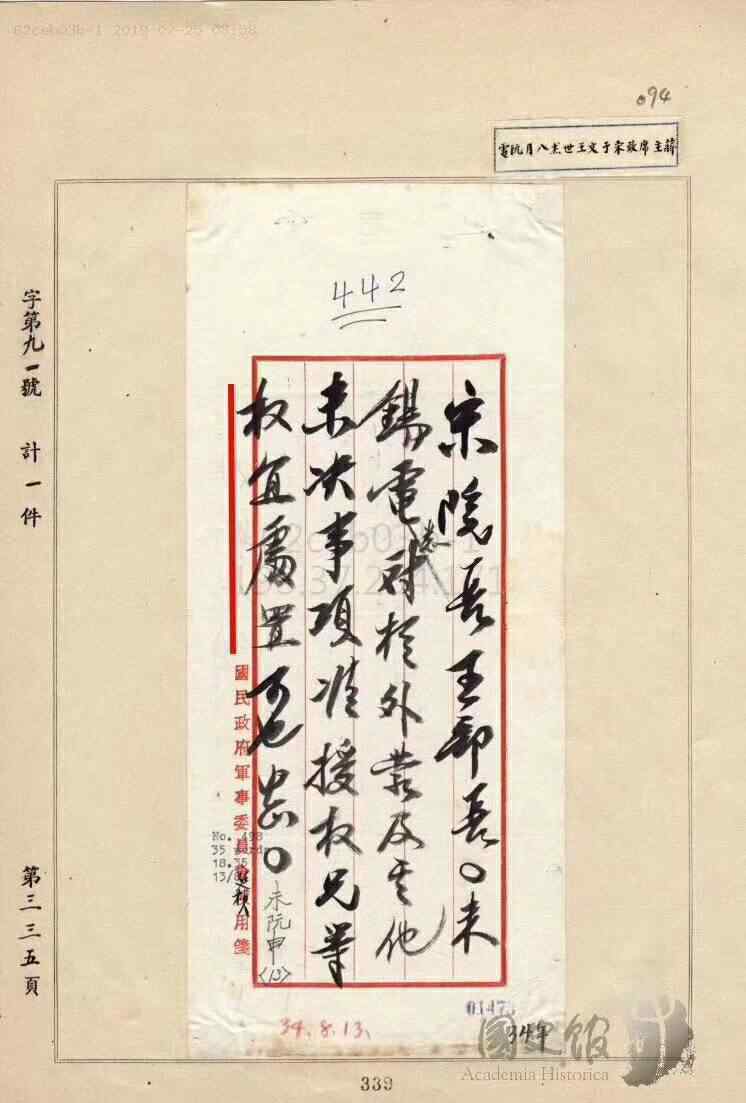 62ceb03b-1 2019-02-25 09:58
094
蔣主席致宋子文王世杰八月阮電
442
宋院長王部長。未
錫電悉對於外蒙及其他
未決事項准授权兄等
权宜處置可也中正。
國民政府軍事委員會用箋
No. 493
18.35
13/8
未阮申
34.8.13.
34年
字第九一號 計一件
第三三五頁
國史館
Academia Historica
339